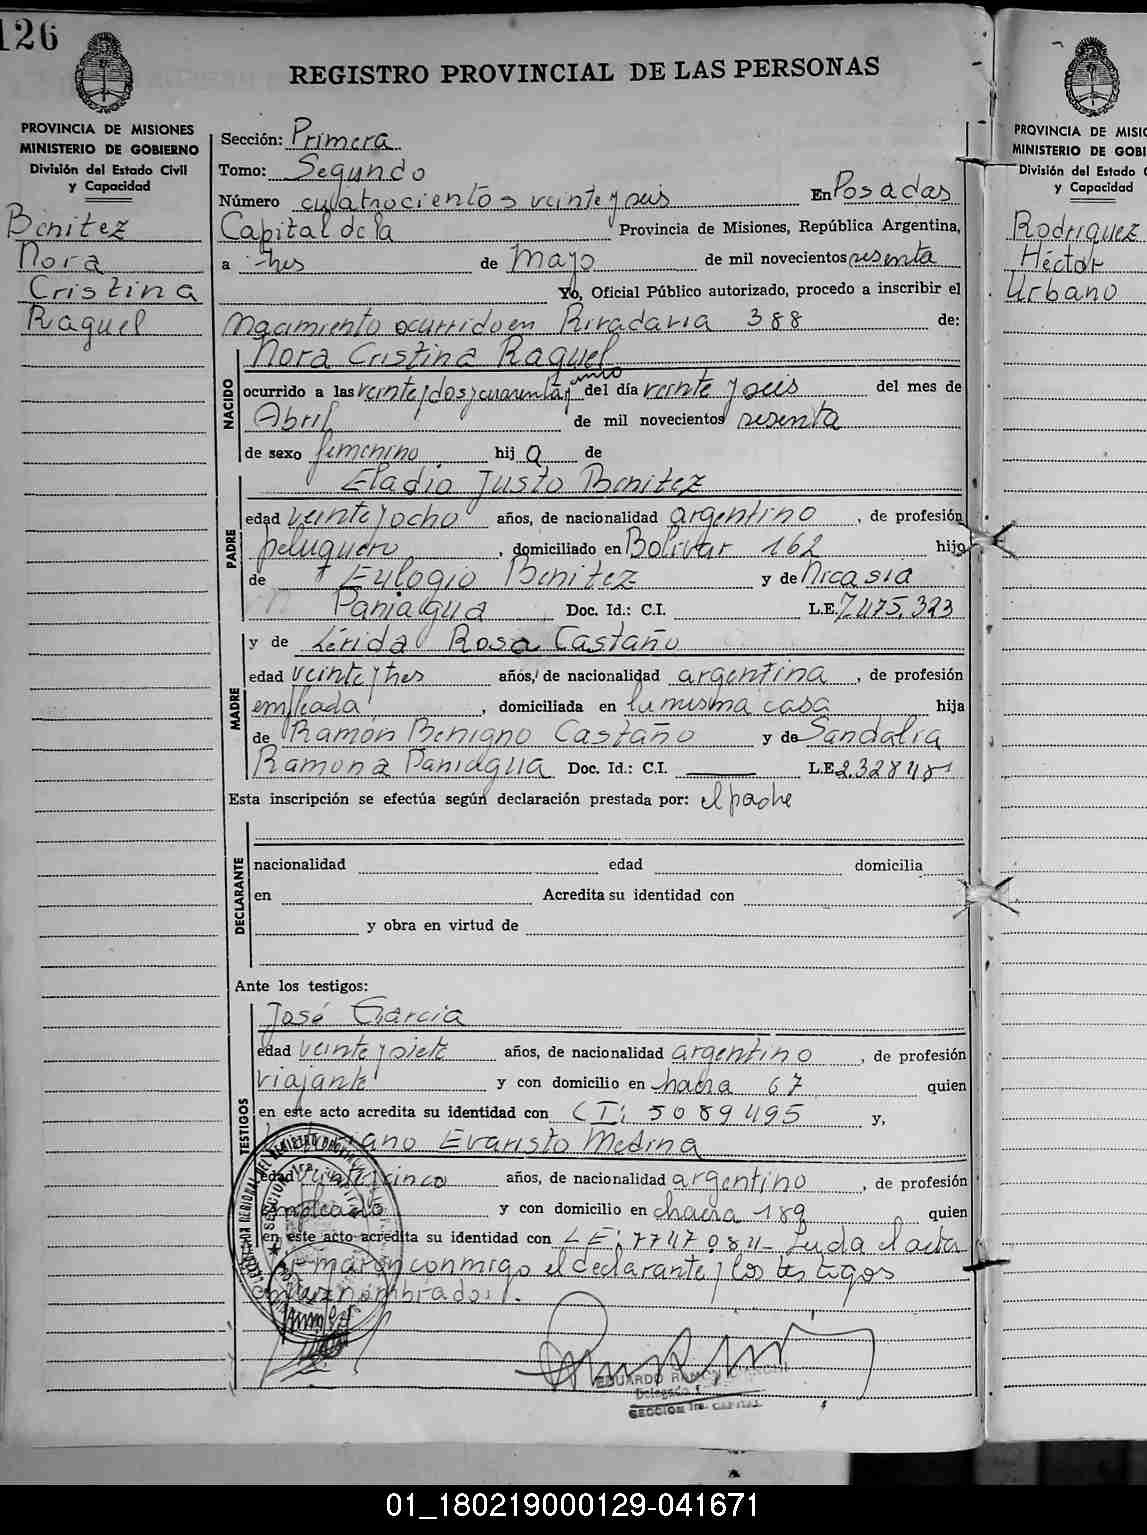 126
REGISTRO PROVINCIAL DE LAS PERSONAS
PROVINCIA DE MISIONES
MINISTERIO DE GOBIERNO
División del Estado Civil
y Capacidad
Benitez
Nora
Cristina
Raquel
Sección: Primera
Tomo: Segundo
Número cuatrocientos veinte y seis En Posadas
Capital de la Provincia de Misiones, República Argentina,
a tres de Mayo de mil novecientos sesenta
Yo, Oficial Público autorizado, procedo a inscribir el
nacimiento ocurrido en Rivadavia 388 de:
NACIDO
Nora Cristina Raquel
ocurrido a las veinte y dos y cuarenta y cinco del día veinte y seis del mes de
Abril de mil novecientos sesenta
de sexo femenino hij a de
PADRE
Eladio Justo Benitez
edad veinte y ocho años, de nacionalidad argentino, de profesión
peluquero, domiciliado en Bolivar 162 hijo
de Eulogio Benitez y de Nicasia
Paniagua Doc. Id.: C.I. L.E. 7.475.323
MADRE
y de Lérida Rosa Castaño
edad veinte y tres años, de nacionalidad argentina, de profesión
empleada, domiciliada en la misma casa hija
de Ramón Benigno Castaño y de Sandalia
Ramona Paniagua Doc. Id.: C.I. L.E. 2.328481
Esta inscripción se efectúa según declaración prestada por: el padre
DECLARANTE
nacionalidad edad domicilia
en Acredita su identidad con
y obra en virtud de
Ante los testigos:
TESTIGOS
José Garcia
edad veinte y siete años, de nacionalidad argentino, de profesión
viajante y con domicilio en chacra 67 quien
en este acto acredita su identidad con CI: 5089495 y,
Evaristo Medina
edad veinte y cinco años, de nacionalidad argentino, de profesión
empleado y con domicilio en chacra 189 quien
en este acto acredita su identidad con LE: 7747084- Leida el acta
firmaron conmigo el declarante y los testigos
nombrados.
EDUARDO RAMON
Delegado
SECCION 1ra. CAPITAL
PROVINCIA DE MISIO
MINISTERIO DE GOBI
División del Estado C
y Capacidad
Rodriguez
Héctor
Urbano
01_180219000129-041671